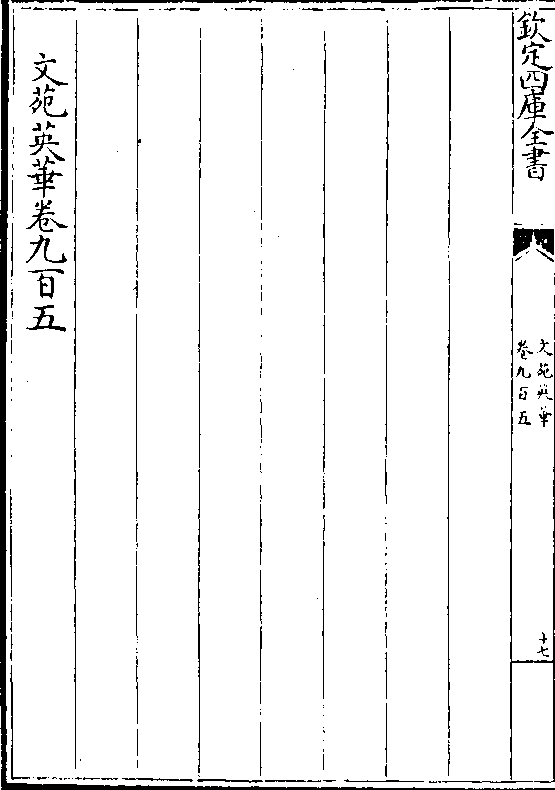 欽定四庫全書
文苑英華
卷九百五
十七
文苑英華卷九百五